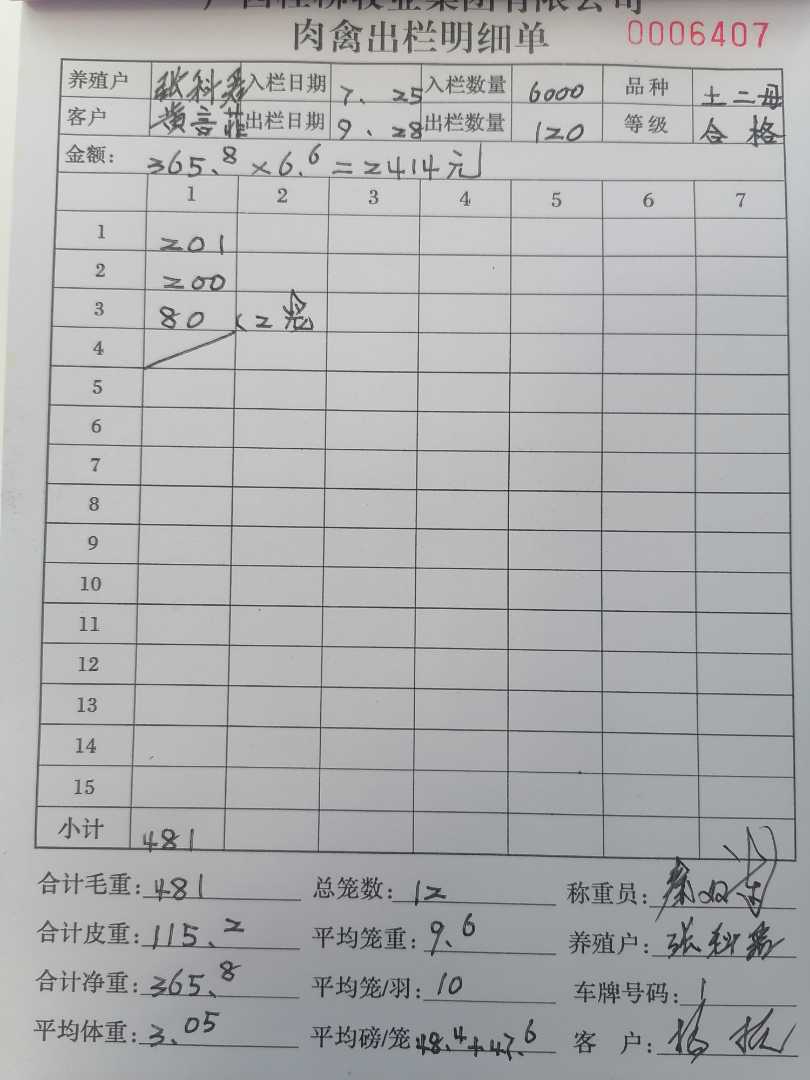 肉禽出栏明细单 0006407
养殖户 张科 入栏日期 7.25 入栏数量 6000 品种 土二母
客户 黄言 出栏日期 9.28 出栏数量 120 等级 合格
金额: 365.8×6.6=2414元
1 2 3 4 5 6 7
1 201
2 200
3 80 (2笼
4
5
6
7
8
9
10
11
12
13
14
15
小计 481
合计毛重: 481 总笼数: 12 称重员:
合计皮重: 115.2 平均笼重: 9.6 养殖户: 张科
合计净重: 365.8 平均笼/羽: 10 车牌号码:
平均体重: 3.05 平均磅/笼 48.4+47.6 客 户: